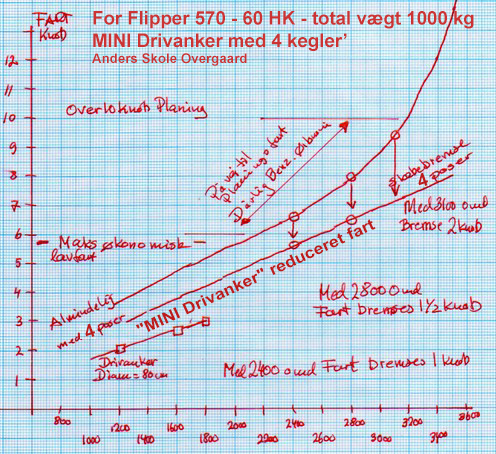 For Flipper 570 - 60 HK - total vægt 1000 kg
MINI Drivanker med 4 kegler'
Anders Skole Overgaard
FART
Knob
12
10
9
8
7
6
5
4
3
2
1
Over 10 knob Planing
På vej til
planingsfart
Dårlig Benz. økonomi
Skabebremse
4 poser
Med 3100 omd
Bremse 2 knob
Maks økonomisk
lavfart
Almindelig
med 4 poser
"MINI Drivanker" reduceret fart
Med 2800 Omd
Fart bremses 1 1/2 knob
Drivanker
Diam = 80 cm
Med 2400 omd Fart bremses 1 knob
800 1000 1200 1400 1600 1800 2000 2200 2400 2600 2800 3000 3200 3400 3600